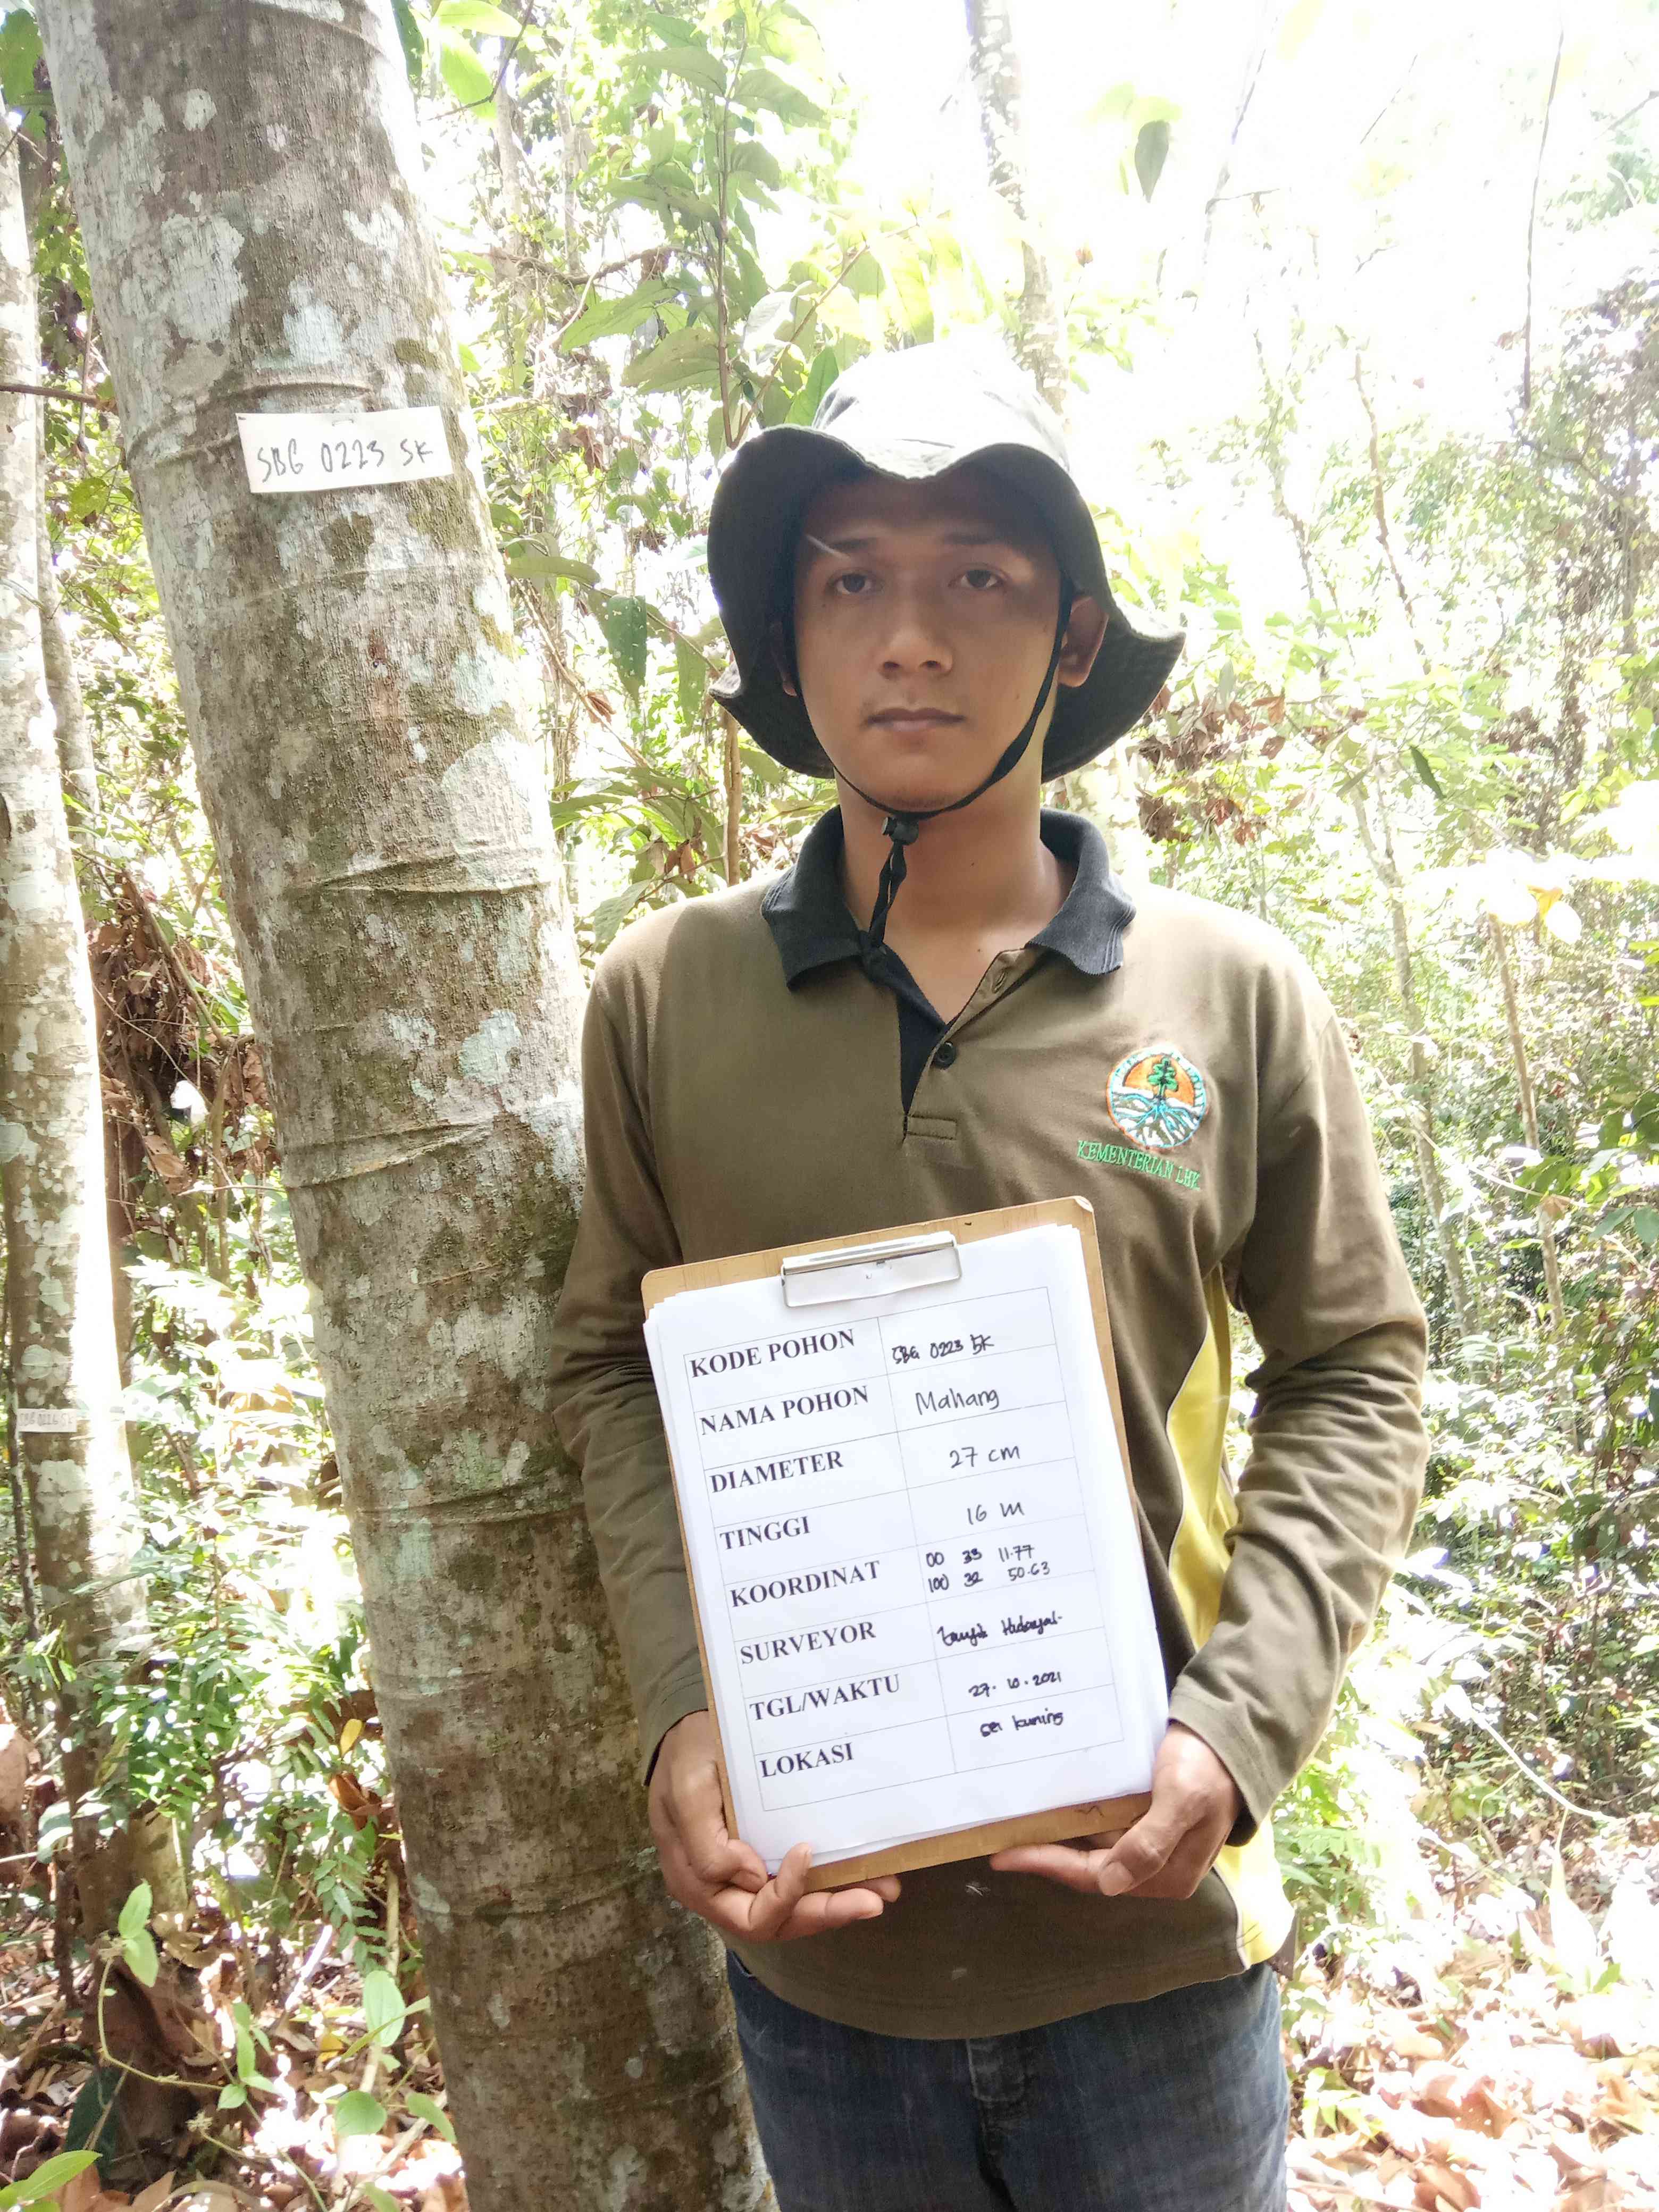 SBG 0223 SK
KEMENTERIAN LHK
KODE POHON SBG 0223 SK
NAMA POHON Mahang
DIAMETER 27 cm
TINGGI 16 m
KOORDINAT 00 33 11.77
100 32 50.63
SURVEYOR Hidayat
TGL/WAKTU 27.10.2021
LOKASI sei kuning